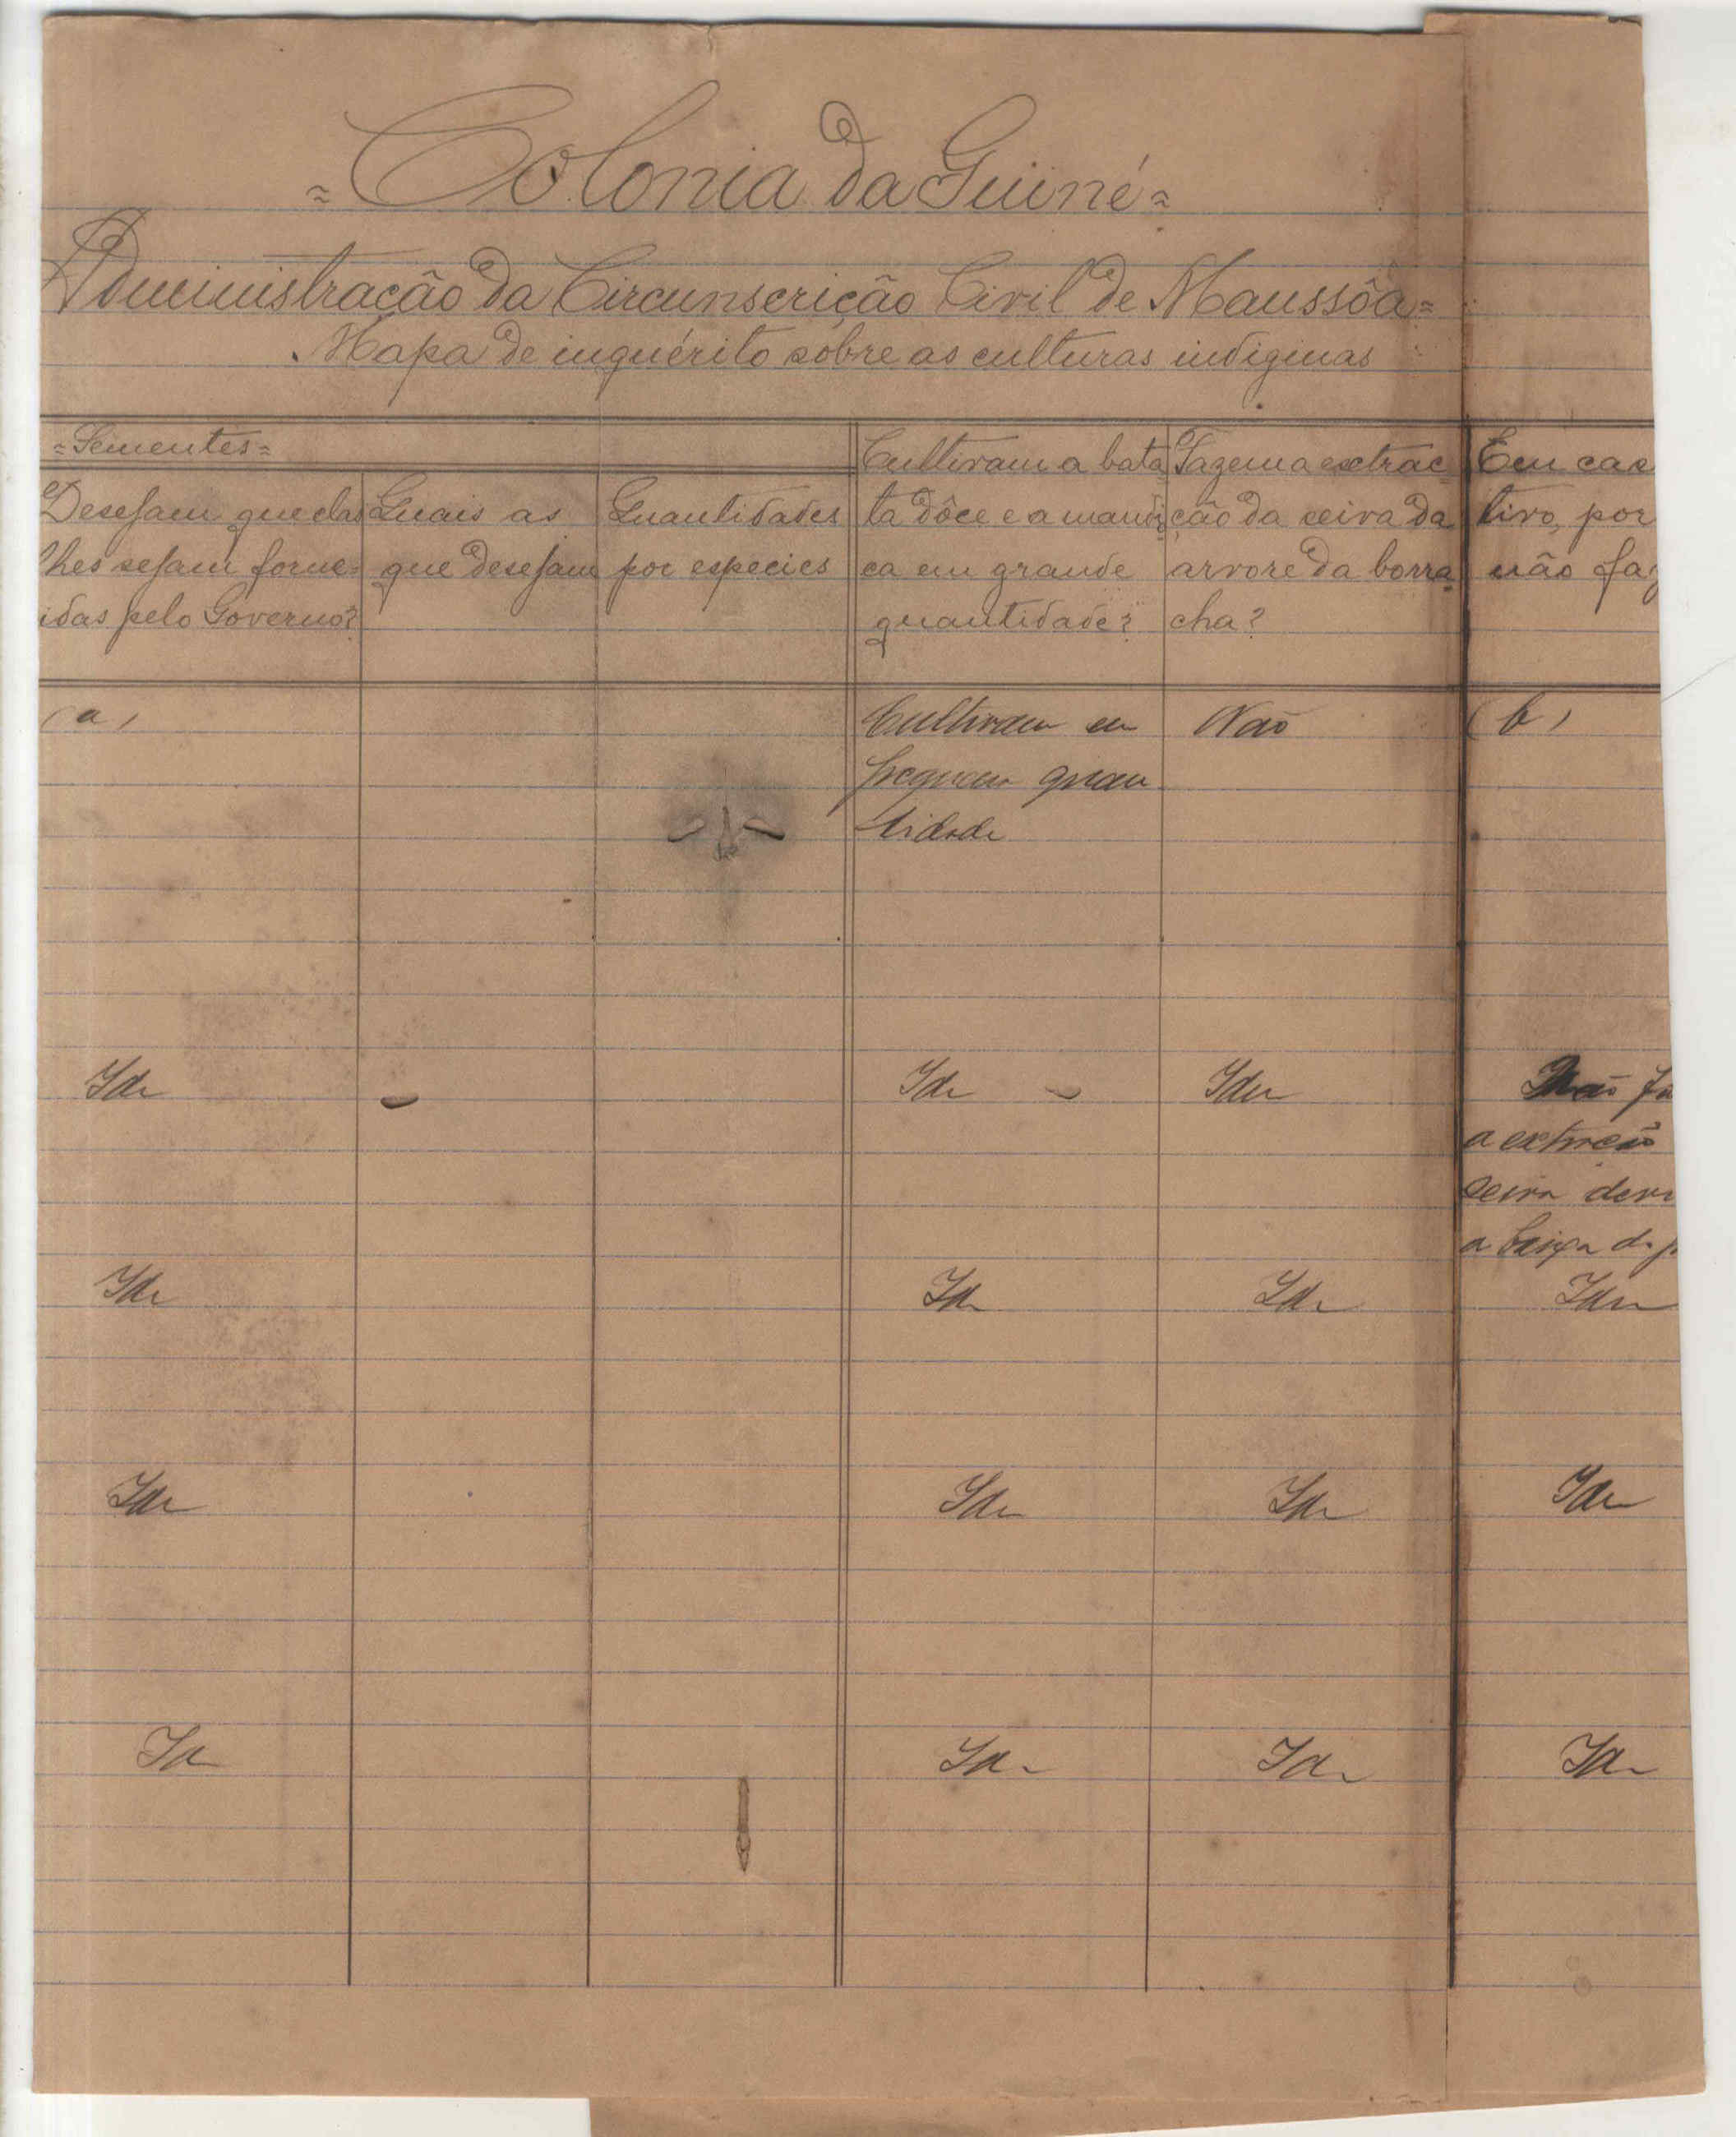 = Colonia da Guiné =
Administração da Circunscrição Civil de Manssôa =
Mapa de inquérito sobre as culturas indiginas
= Sementes =
Desejam que elas
lhes sejam forne-
idas pelo Governo?
Quais as
que desejam
Quantidades
por especies
Cultivam a bata-
ta dôce e a mandi-
ca em grande
quantidade?
Fazem a extrac-
ção da seiva da
arvore da borra-
cha?
Em cas
tivo, por
não faz
(a)
Cultivam em
pequena quan
tidade
Não
(b)
Idm
Idm
Idem
Não fa
a extracção
seiva devi
a baixa do p
Idm
Idm
Idm
Idem
Idm
Idm
Idm
Idm
Id
Id
Id
Id